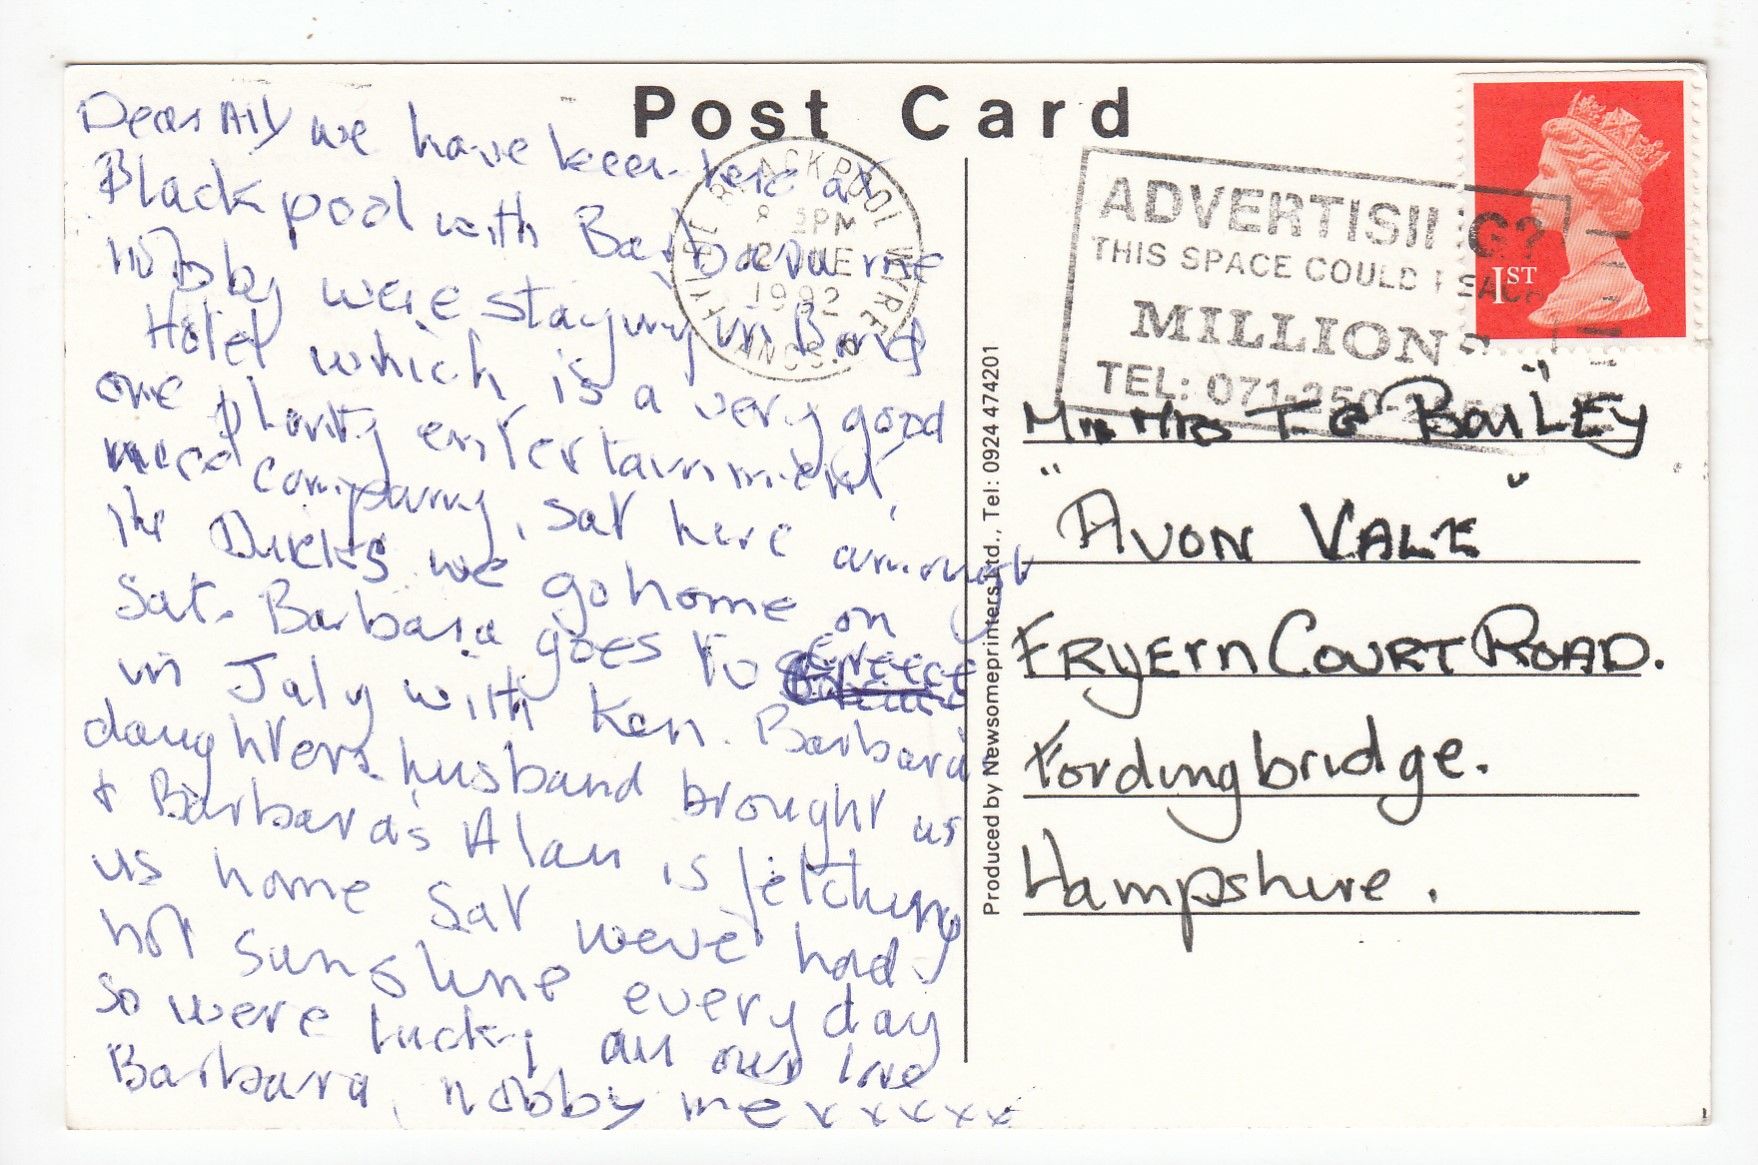 Post Card
Dear Ally we have been here at
Blackpool with Barbara me
Nobby were staying in Bond
Hotel which is a very good
one plenty entertainment,
company, sat here amongst
the Ducks we go home on
Sat. Barbara goes to Greece
in July with Ken. Barbara
daughters husband brought us
& Barbaras Alan is fetching
us home Sat weve had
hot sunshine every day
so were lucky all our love
Barbara, Nobby me xxxxx
BLACKPOOL WYRE
FYLDE LANCS.
PM
12 JUNE
1992
ADVERTISING?
THIS SPACE COULD REACH
MILLIONS
TEL: 071-250-
1ST
Mr Mrs T G BaiLEY
" AVON VALE "
FRYErn COURT ROAD.
Fordingbridge.
Hampshire.
Produced by Newsomeprinters Ltd., Tel: 0924 474201